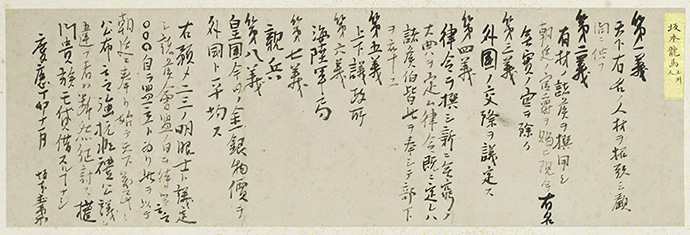 坂本龍馬 土州人
第一義
天下有名ノ人材ヲ招致シ顧
問ニ供フ
第二義
有材ノ諸侯ヲ撰用シ
朝廷ノ官爵ヲ賜ヒ現今有名
無実ノ官ヲ除ク
第三義
外国ノ交際ヲ議定ス
第四義
律令ヲ撰シ新ニ無窮ノ
大典ヲ定ム律令既ニ定レハ
諸侯伯皆此ヲ奉シテ部下
ヲ率ス
第五義
上下議政所
第六義
海陸軍局
第七義
親兵
第八義
皇国今日ノ金銀物價ヲ
外国ト平均ス
右預メ二三ノ明眼士ト議定
シ諸侯會盟ノ日ヲ待ツテ云云
○○○自ラ盟主ト為リ此ヲ以テ
朝廷ニ奉リ始テ天下萬民ニ
公布云云強抗非禮公議ニ
違フ者ハ断然征討ス權
門貴族モ貸借スルコトナシ
慶應丁卯十一月 坂本直柔